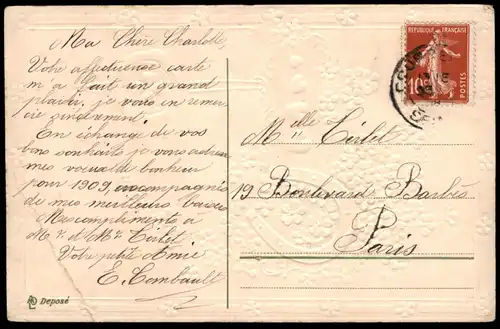 Ma Chère Charlotte
Votre affectueuse carte
m'a fait un grand
plaisir, je vous en remer
cie sincèrement.
En échange de vos
bons souhaits je vous adresse
mes vœux de bonheur
pour 1909, accompagnés
de mes meilleurs baisers
Mes compliments à
Mr et Me Tislet
Votre petite Amie
E. Combault
Deposé
RÉPUBLIQUE FRANÇAISE
10c
POSTES
Melle Tislet
19 Boulevard Barbès
Paris